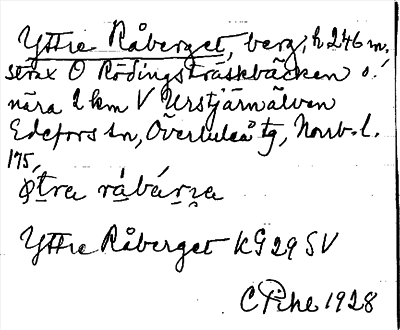 Yttre Råberget, berg, h. 246 m.
strax O Rödingsträskbäcken o.
nära 2 km V Urstjärnälven
Edefors sn, Överluleå tg, Norrb. l.
175,
ø̀tra rábárɲa
Yttre Råberget KG 29 SV
C Pihl 1928